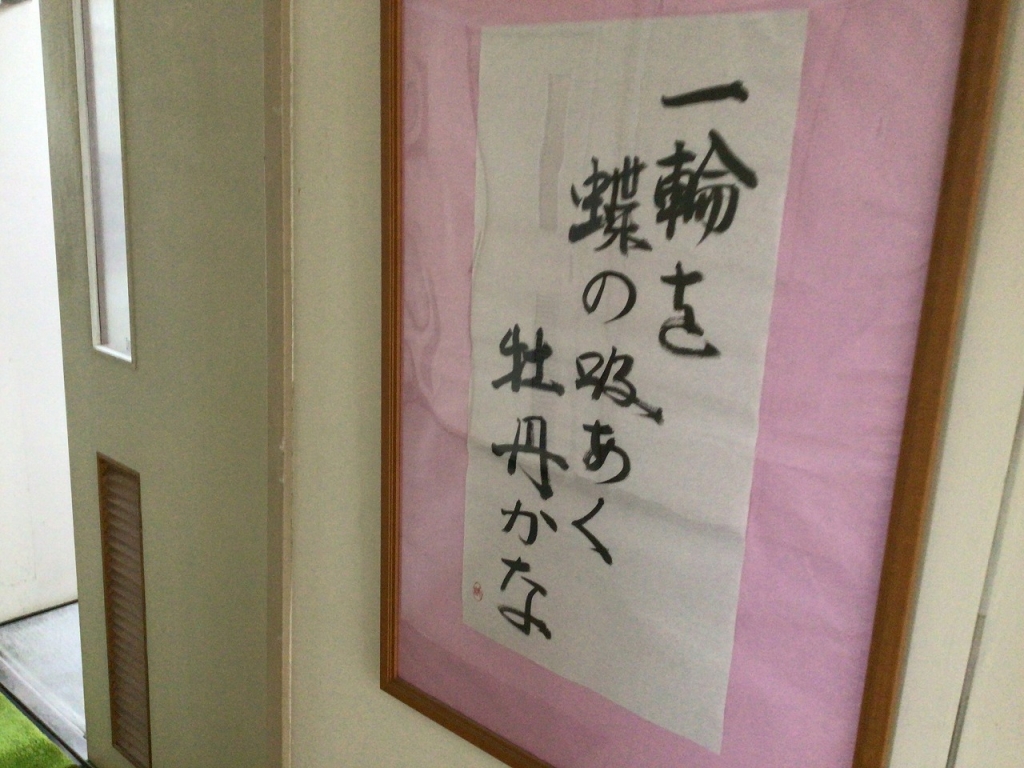 一輪を
蝶の吸あく
牡丹かな